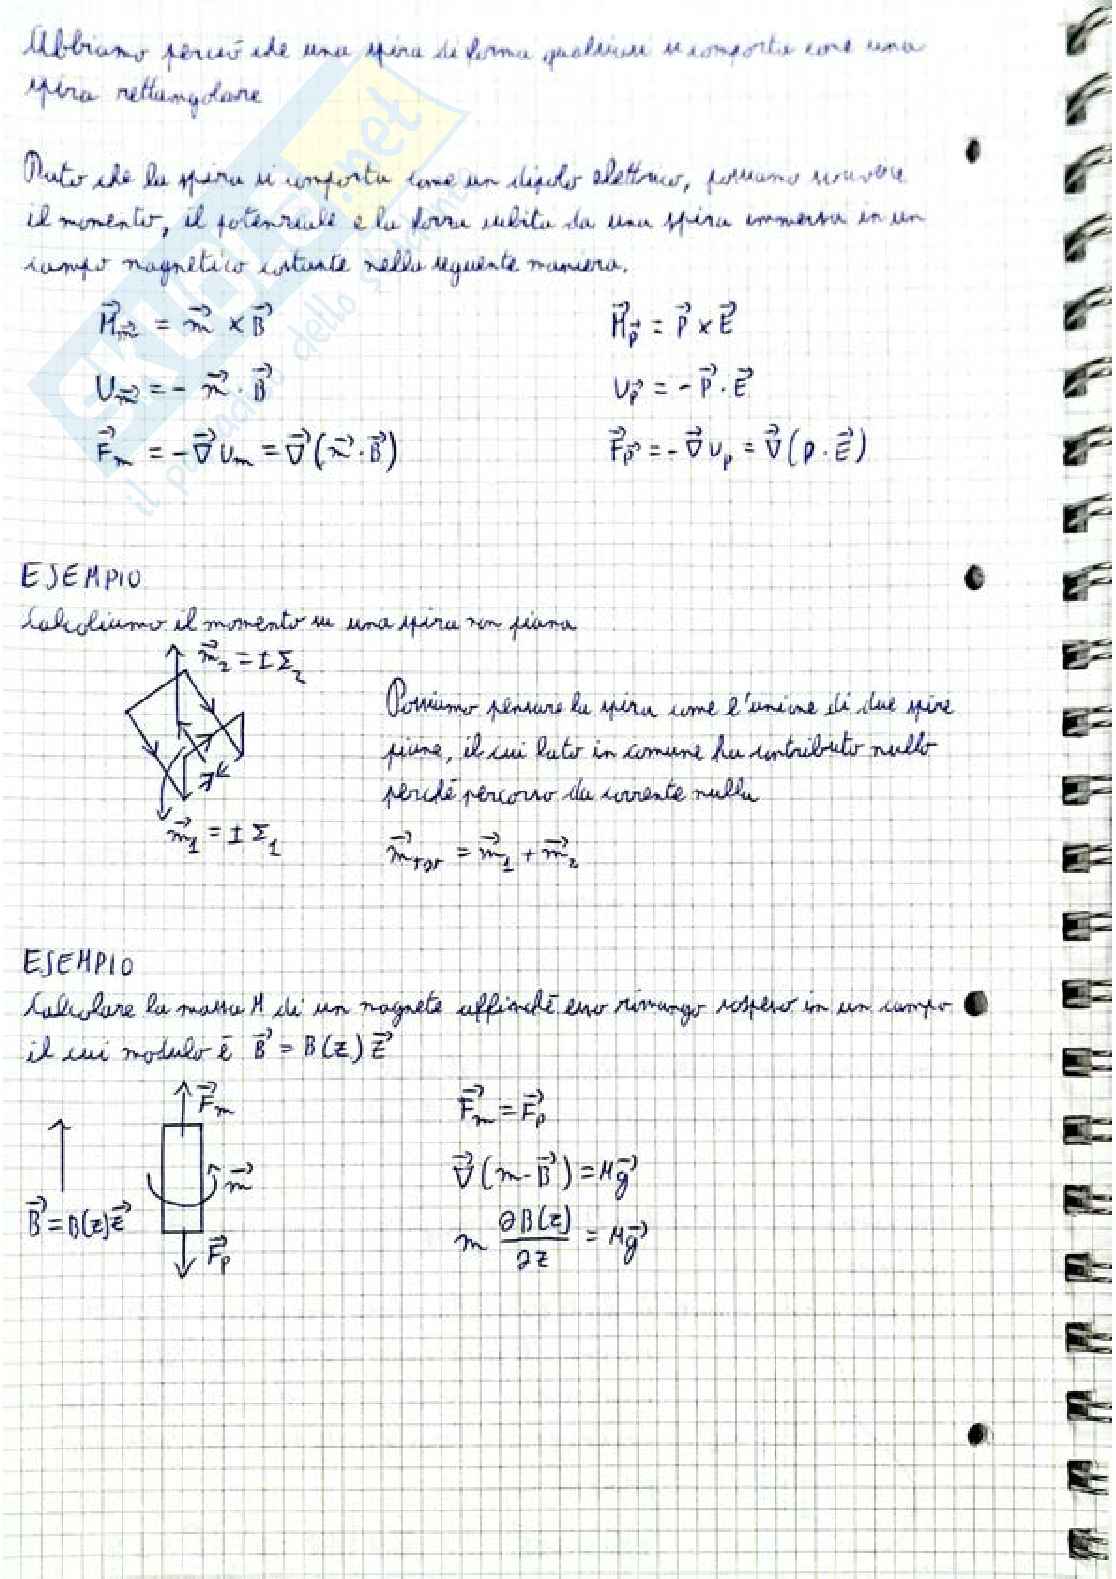 Abbiamo perciò che una spira di forma qualsiasi si comporta come una
spira rettangolare
Dato che la spira si comporta come un dipolo elettrico, possiamo scrivere
il momento, il potenziale e la forza subita da una spira immersa in un
campo magnetico costante nella seguente maniera.
M⃗_m⃗ = m⃗ × B⃗ M⃗_p⃗ = p⃗ × E⃗
U_m⃗ = - m⃗ · B⃗ U_p⃗ = - p⃗ · E⃗
F⃗_m = - ∇⃗ U_m = ∇⃗ (m⃗ · B⃗) F⃗_p⃗ = - ∇⃗ U_p = ∇⃗ (p · E⃗)
ESEMPIO
Calcoliamo il momento su una spira non piana
m⃗₂ = I Σ₂
Possiamo pensare la spira come l'unione di due spire
piane, il cui lato in comune ha contributo nullo
perché percorso da corrente nulla
m⃗₁ = I Σ₁
m⃗_TOT = m⃗₁ + m⃗₂
ESEMPIO
Calcolare la massa M di un magnete affinché esso rimanga sospeso in un campo
il cui modulo è B⃗ = B(z) z⃗
F⃗_m
F⃗_m = F⃗_p
m⃗
∇⃗ (m · B⃗) = M g⃗
B⃗ = B(z) z⃗
F⃗_p
m ∂B(z)/∂z = M g⃗
SKUOLA.net
il paradiso dello studente